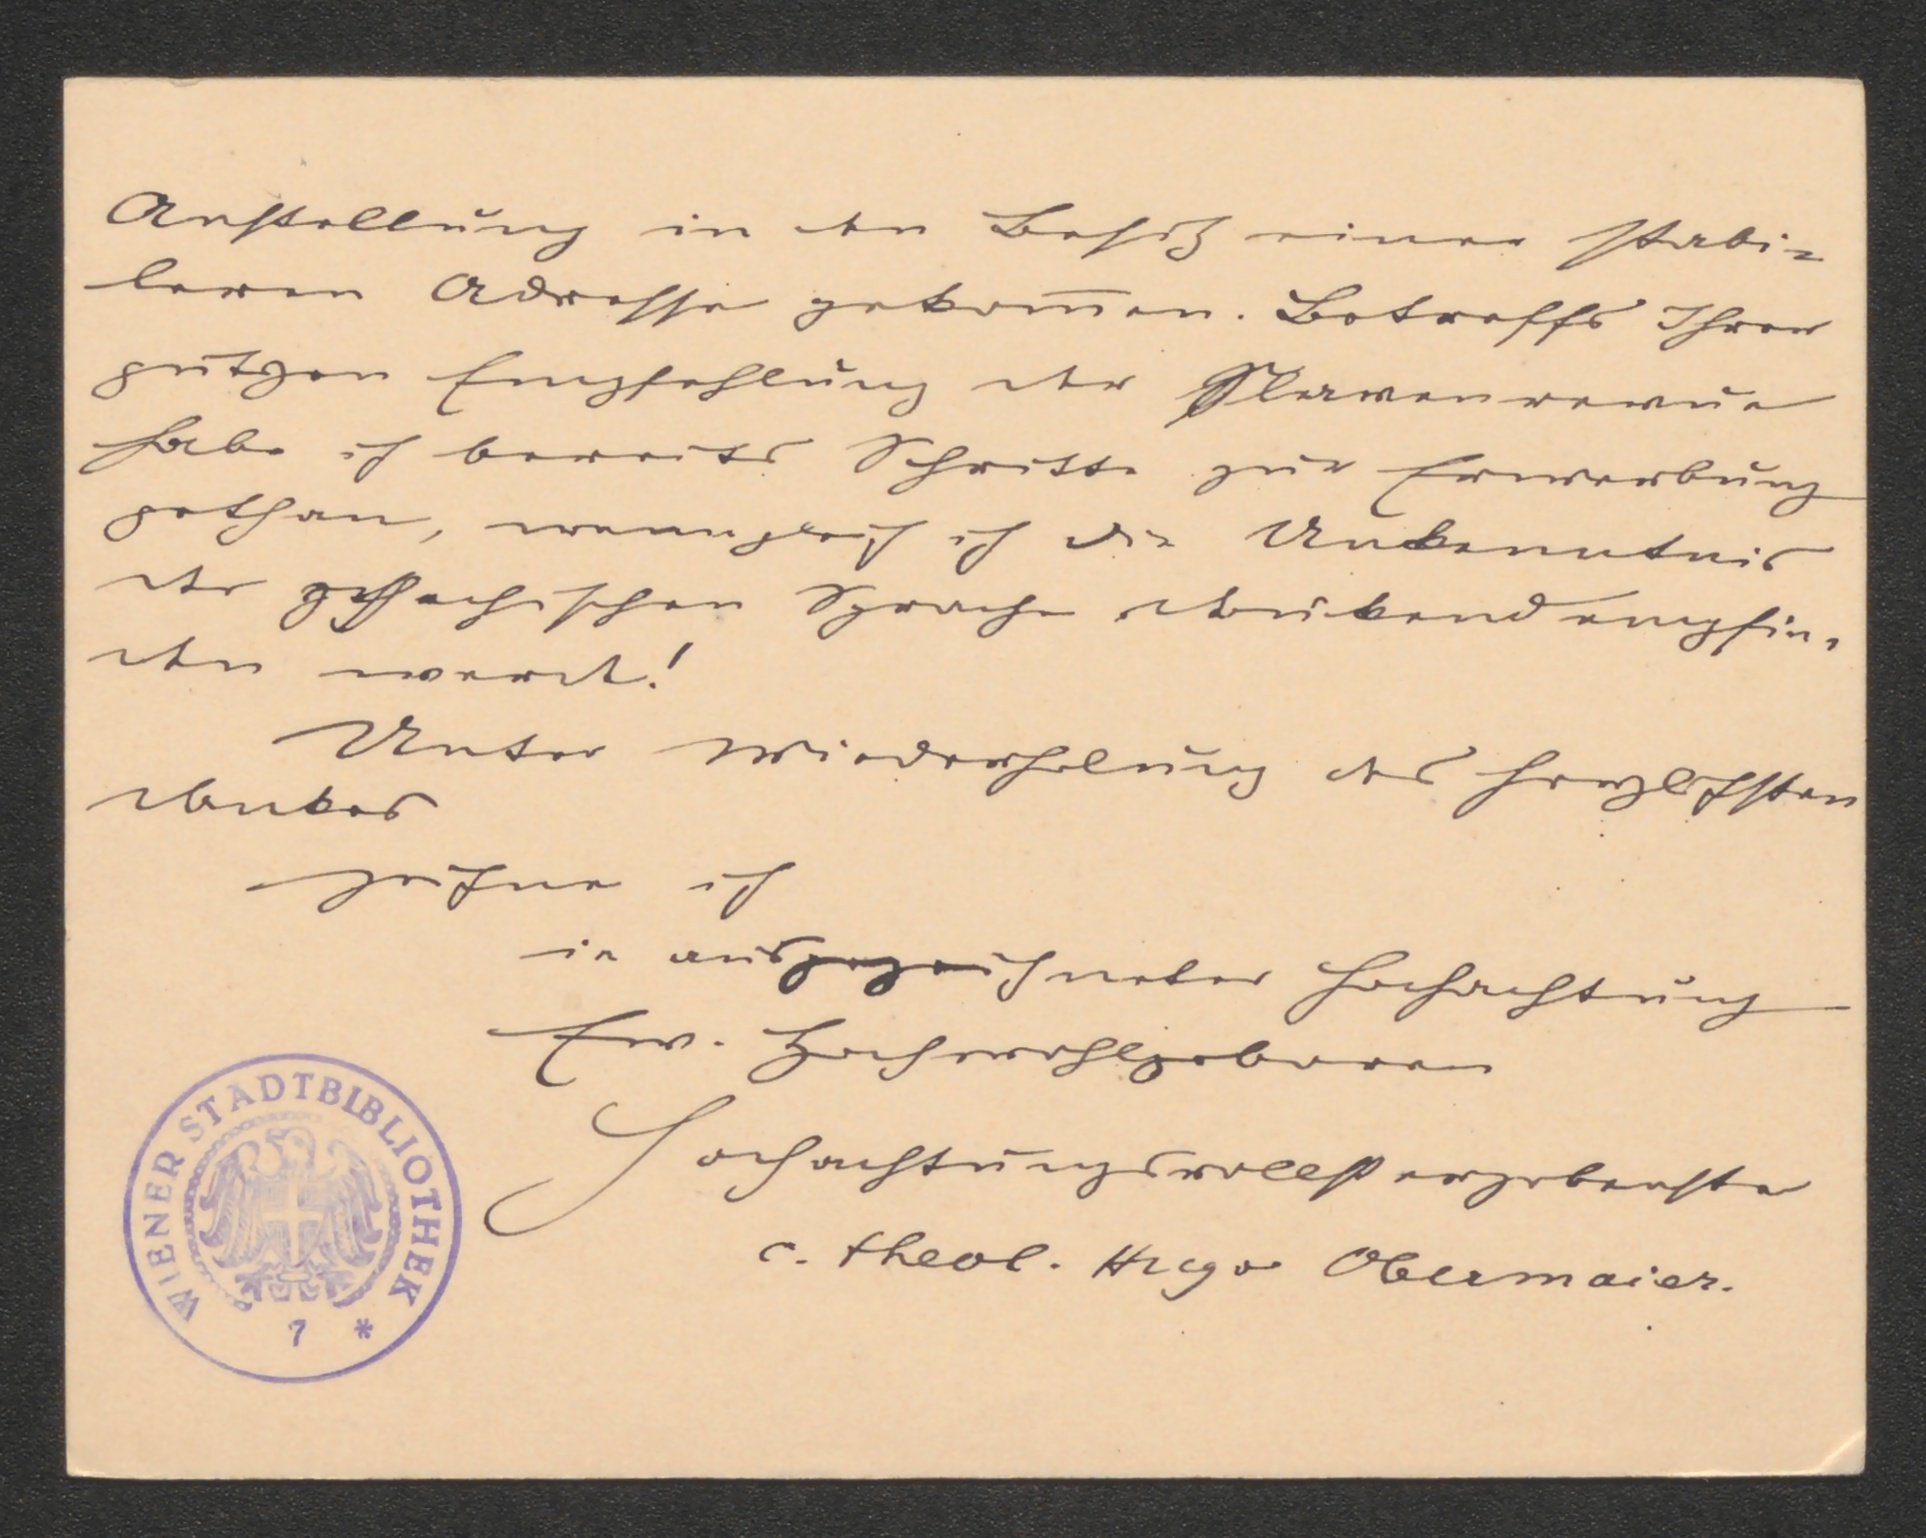 Anstellung in den Besitz einer stabi-
leren Adresse gekom̄en. Betreffs Ihrer
gütgen Empfehlung der Slavenrevue
habe ich bereits Schritte zur Erwerbung
gethan, wenngleich ich die Unkenntnis
der Sprache empfin-
den werde!
Unter Wiederholung des herzlichsten
Dankes
zeichne ich
in ausgezeichneter Hochachtung
Ew. Hochwohlgeboren
Hochachtungsvollst ergebenster
c. theol. Hugo Obermaier.
WIENER STADTBIBLIOTHEK
7 *